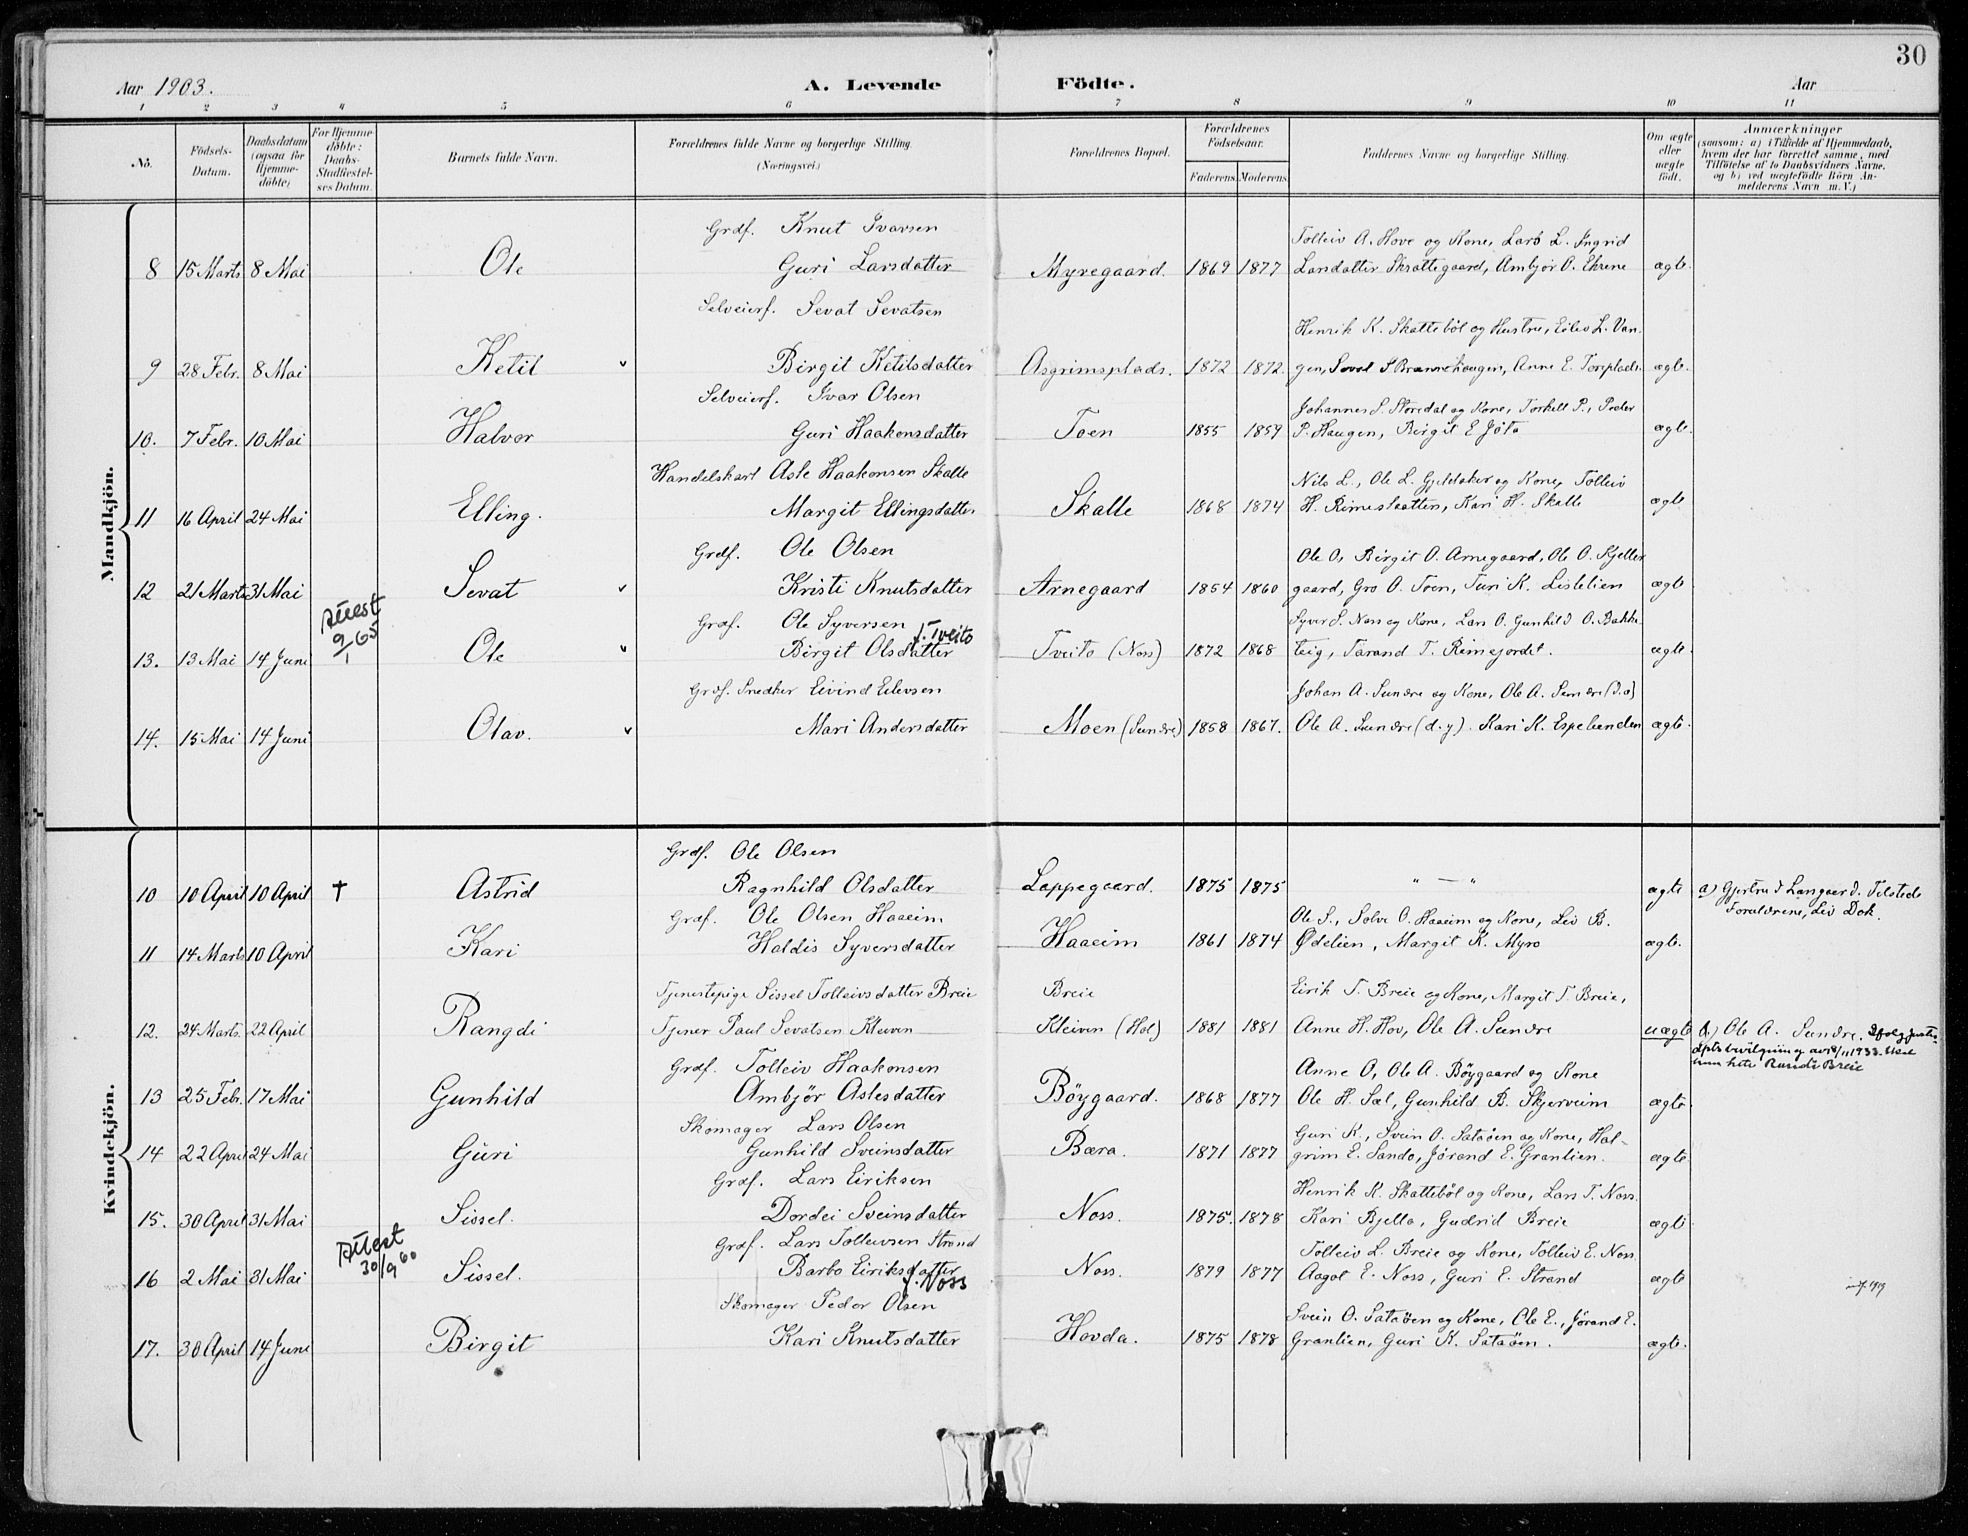 30
Aar 1903. A. Levende Födte. Aar
1 2 3 4 5 6 7 8 9 10 11
No. Födsels-Datum. Daabsdatum (ogsaa for Hjemmedöbte) For Hjemmedöbte: Daabs-Stadfæstelses Datum. Barnets fulde Navn. Forældrenes fulde Navne og borgerlige Stilling. (Næringsvei.) Forældrenes Bopæl. Forældrenes Födselsaar. Faderens Moderens Faddernes Navne og borgerlige Stilling. Om ægte eller uægte födt. Anmærkninger (saasom: a) i Tilfælde af Hjemmedaab, hvem der har forrettet samme, med Tilföielse af to Daabsvidners Navne, og b) ved uægtefödte Börn Anmelderens Navn m. V.)
Mandkjön.
Grdf. Knut Ivarsen
Tolleiv A. Hove og Kone, Lars L. Ingrid
8 15 Marts 8 Mai Ole Guri Larsdatter Myregaard. 1869 1877 Larsdatter Skrattegaard, Ambjør O. Ehrene ægte.
Selveierf. Sevat Sevatsen
Henrik K. Skattebøl og Hustru, Eilev L. Van-
9 28 Febr. 8 Mai Ketil Birgit Ketilsdatter Asgrimsplads. 1872 1872. gen, Sevat S Brannehaugen, Anne E. Toreplads ægte.
Selveierf. Ivar Olsen
Johannes S. Storedal og Kone, Torkell P., Peder
10. 7 Febr. 10 Mai Halvor Guri Haakonsdatter Toen 1855 1859 P. Haugen, Birgit E Jøto ægte.
Handelskarl Asle Haakonsen Skalle
Nils L., Ole L. Gjeldaker og Kone, Tolleiv
11 16 April 24 Mai Elling. Margit Ellingsdatter Skalle 1868 1874 H. Rimeslaatten, Kari H. Skalle ægte
Grdf. Ole Olsen
Ole O, Birgit O. Arnegaard, Ole O. Kjeller
12 21 Marts 31 Mai Sevat Kristi Knutsdatter Arnegaard 1854 1860 gaard, Gro O. Toen, Turi K. Lislelien ægte
Attest 9/1 65
Grdf. Ole Syversen
f. Tveito
Syver S. Noss og Kone, Lars O. Gunhild O. Bakke
13. 13 Mai 14 Juni Ole Birgit Olsdatter Tveito (Noss) 1872 1868 teig, Tärand T. Rimejordet. ægte.
Grdf. Snedker Eivind Eilevsen
Johan A. Sundre og Kone, Ole A. Sundre (d.æ)
14. 15 Mai 14 Juni Olav. Mari Andersdatter Moen (Sundre) 1858 1867. Ole A. Sundre (d.y). Kari K. Espelunden ægte.
Kvindekjön.
Grdf. Ole Olsen
10 10 April 10 April † Astrid Ragnhild Olsdatter Lappegaard. 1875 1875 " — " ægte a) Gjertrud Langaard. Tilstede
Forældrene, Liv Dok.
Grdf. Ole Olsen Haaeim
Ole S., Solve O. Haaeim og Kone, Liv B.
11 14 Marts 10 April Kari Haldis Syversdatter Haaeim 1861 1874 Ødelien, Margit K. Myro ægte.
Tjenestepige Sissel Tolleivsdatter Breie Breie Eirik T. Breie og Kone, Margit T. Breie,
12. 24 Marts. 22 April Rangdi Tjener Paul Sevatsen Kleiven Kleiven (Hol) 1881 1881 Anne H. Hov, Ole A. Sundre uægte b) Ole A. Sundre. Ifølg Justis-
dpts bevilgning av 18/11 1933 skal
hun hete Randi Breie
Grdf. Tolleiv Haakonsen
Anne O, Ole A. Böygaard og Kone
13 25 Feb. 17 Mai Gunhild Ambjör Aslesdatter Böygaard. 1868 1877 Ole H. Sæl, Gunhild B. Skjerveim ægte.
Skomager Lars Olsen
Guri K., Svein O. Sataöen og Kone, Hal-
14 22 April 24 Mai Guri Gunhild Sveinsdatter Bæra. 1871 1877 grim E. Sando, Jörand E. Granlien. ægte.
Grdf. Lars Eiriksen
Henrik K. Skattebøl og Kone, Lars T. Noss.
15. 30 April 31 Mai Sissel. Dordei Sveinsdatter Noss. 1875. 1878 Kari Bjella, Gudrid Breie ægte
Attest 30/9 60
Grdf. Lars Tolleivsen Strand
Tolleiv L. Breie og Kone, Tolleiv E. Noss
16 2 Mai 31 Mai Sissel. Barbo Eiriksdatter Noss. 1879 1877 Aagot E. Noss, Guri E. Strand ægte
f. Noss
Skomager Peder Olsen
Svein O. Sataöen og Kone, Ole E., Jörand E.
17. 30 April 14 Juni Birgit Kari Knutsdatter Hovda. 1875 1878 Granlien, Guri K. Sataöen. ægte.